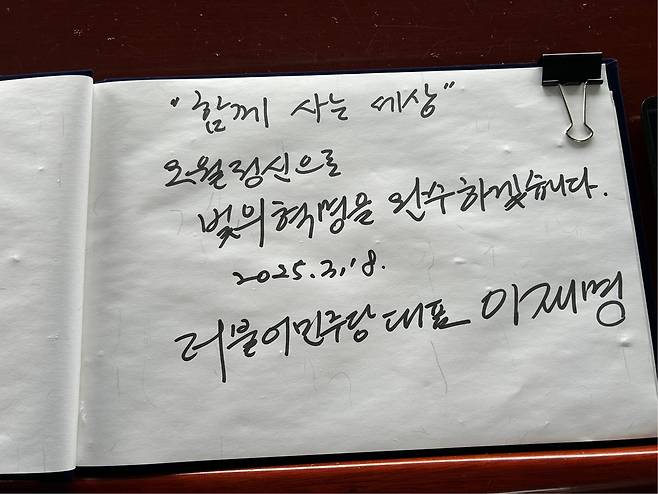 "함께 사는 세상"
오월정신으로
빛의혁명을 완수하겠습니다.
2025.3.18.
더불어민주당대표 이재명